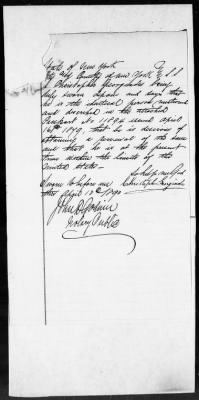 State of New York
City & County of New York } S.S
Christopher Georgiades being
duly sworn deposes and says that
he is the identical person mentioned
and described in the attached
Passport No 11094 issued April
16th 1879, that he is desirous of
obtaining a renewal of the same
and that he is at the present
time within the limits of the
United States—
So help me God
Sworn to before me
this April 12th 1890
Notary Public